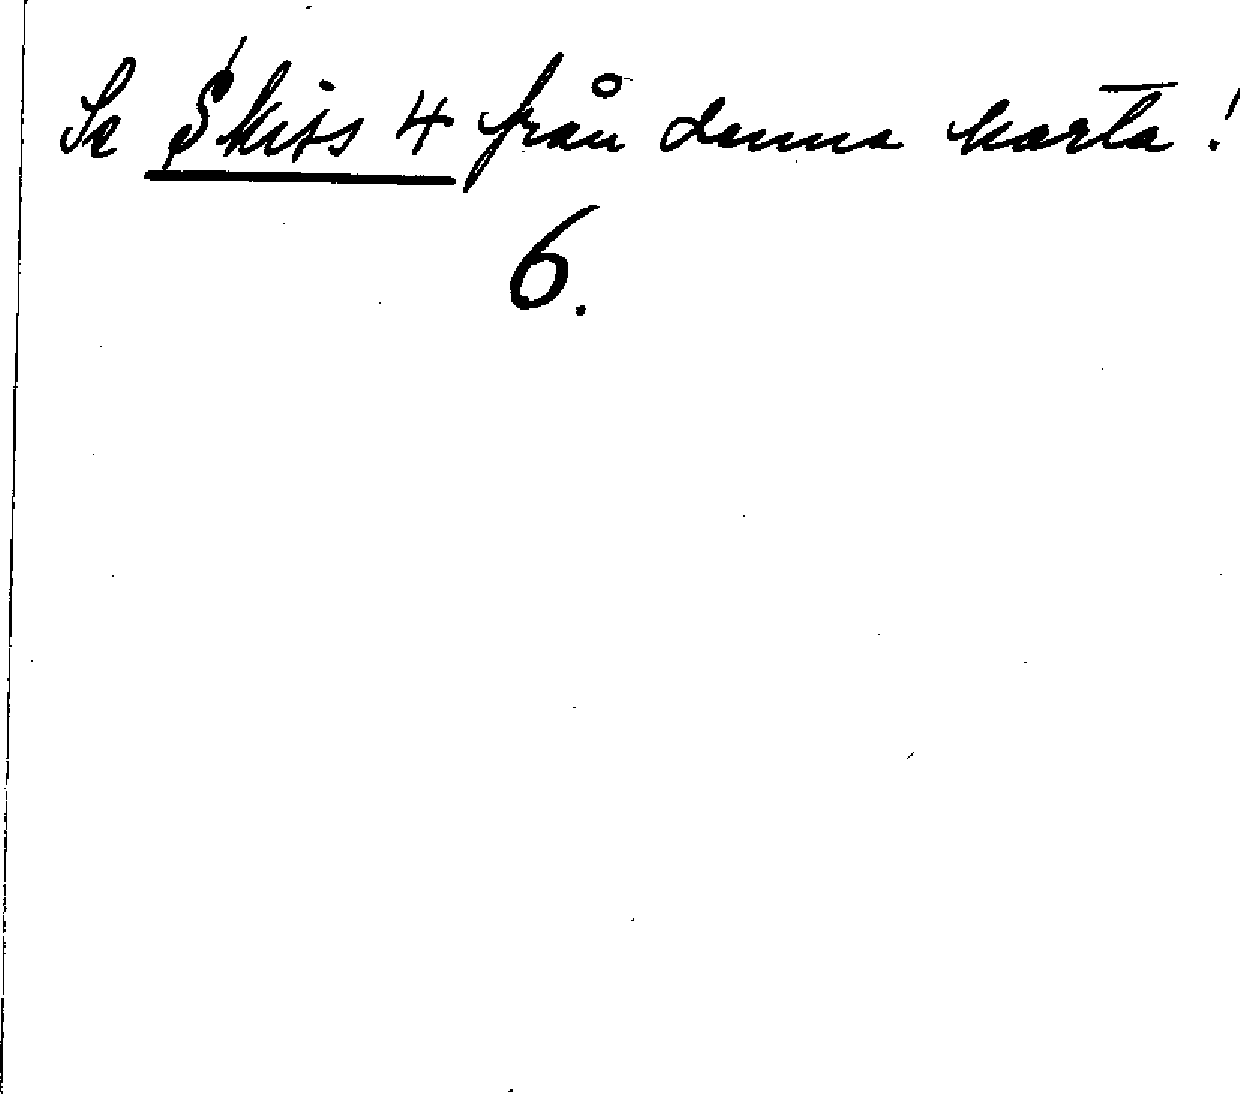 Se Skiss 4 från denna karta!
6.